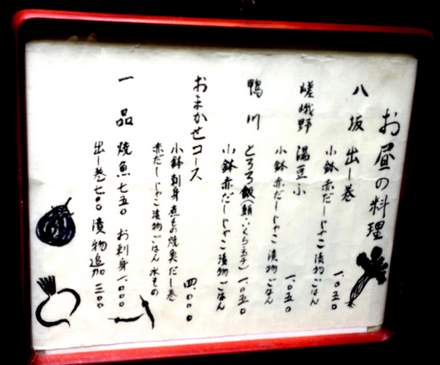 お昼の料理
八坂 出し巻
小鉢 赤だし じゃこ 漬物 ごはん 一、〇五〇
嵯峨野 湯豆ふ
小鉢 赤だし じゃこ 漬物 ごはん 一、〇五〇
鴨川 とろろ飯
小鉢 赤だし じゃこ 漬物 一、〇五〇
おまかせコース
小鉢 刺身 煮もの 焼奥 だし巻
赤だし じゃこ 漬物 ごはん 水もの 四、〇〇〇
一品 焼魚 七五〇 お刺身 一、〇〇〇
出し巻 七八〇 漬物追加 三〇〇